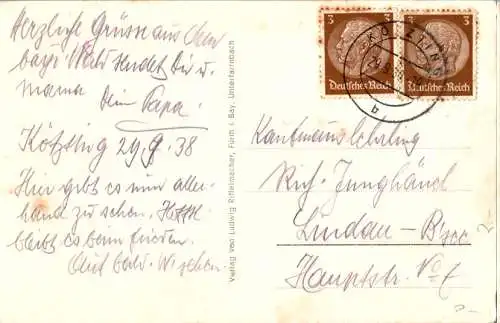 Herzliche Grüsse aus dem
bayr. Wald sendet Dir u.
Mama Dein Papa.
Kötzting 29.9.38
Hier gibt es nun aller-
hand zu sehen. Hoffentl.
bleibt es beim Frieden.
Auf bald. Wiesehen.
Verlag von Ludwig Riffelmacher, Fürth i. Bay. Unterfarrnbach
3 3
Deutsches Reich
3
Deutsches Reich
KÖTZTING
b
Kaufmannslehrling
Rich. Junghänel
Lindau - B'see
Hauptstr. No 7